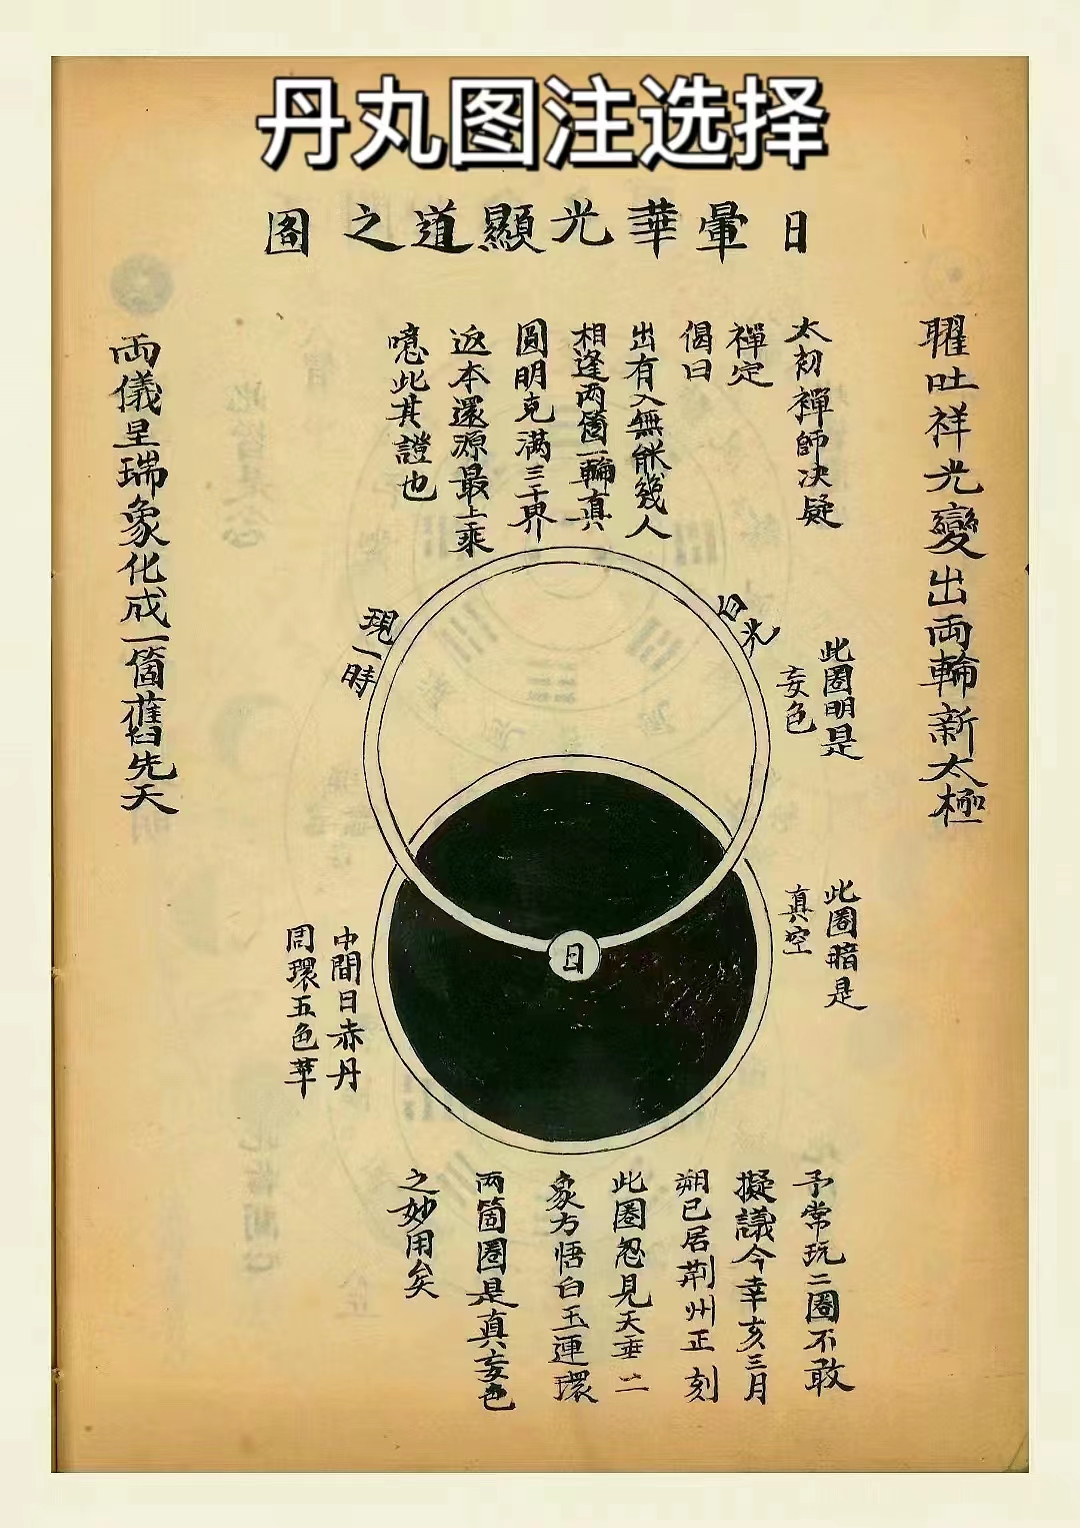 丹丸图注选择
日暈華光顯道之圖
耀吐祥光變出両輪新太極
太初禪師决疑
禪定
偈曰
出有入無能幾人
相逢两箇一輪真
圓明克满三千界
返本還源最上乘
噫此其證也
両儀呈瑞象化成一箇舊先天
白光
現一時
此圏明是
妄色
此圏暗是
真空
日
中間日赤丹
周環五色華
予常玩二圏不敢
擬議今幸亥三月
朔已居荆州正刻
此圏忽見天垂二
象方悟白玉連環
两箇圏是真妄色
之妙用矣